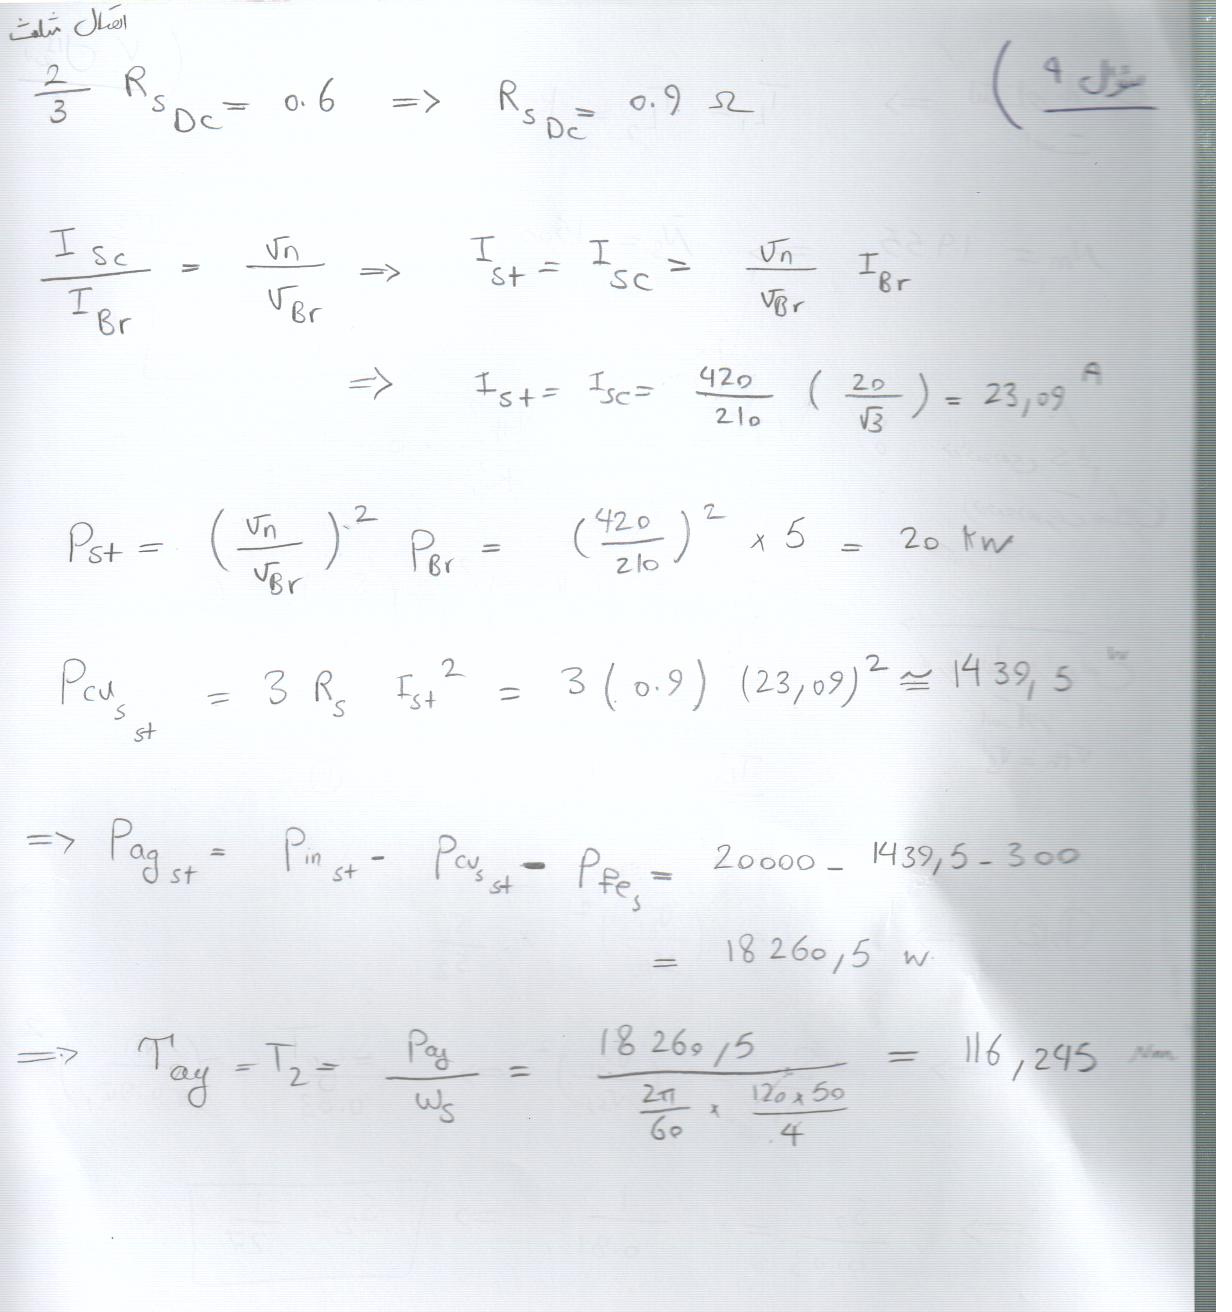 اتصال مثلث
سوال 9 )
2/3 R_s_DC = 0.6 => R_s_DC = 0.9 Ω
I_sc / I_Br = Vn / V_Br => I_st = I_sc = Vn / V_Br I_Br
=> I_st = I_sc = 420/210 ( 20/√3 ) = 23,09 A
P_st = ( Vn / V_Br )² P_Br = ( 420/210 )² × 5 = 20 kW
P_cu_s_st = 3 R_s I_st² = 3 ( 0.9 ) ( 23,09 )² ≅ 1439,5 W
=> P_ag_st = P_in_st - P_cu_s_st - P_fe_s = 20000 - 1439,5 - 300
= 18260,5 W
=> T_ag = T_2 = P_ag / ω_s = 18260,5 / ( 2π/60 × 120×50/4 ) = 116,245 N.m